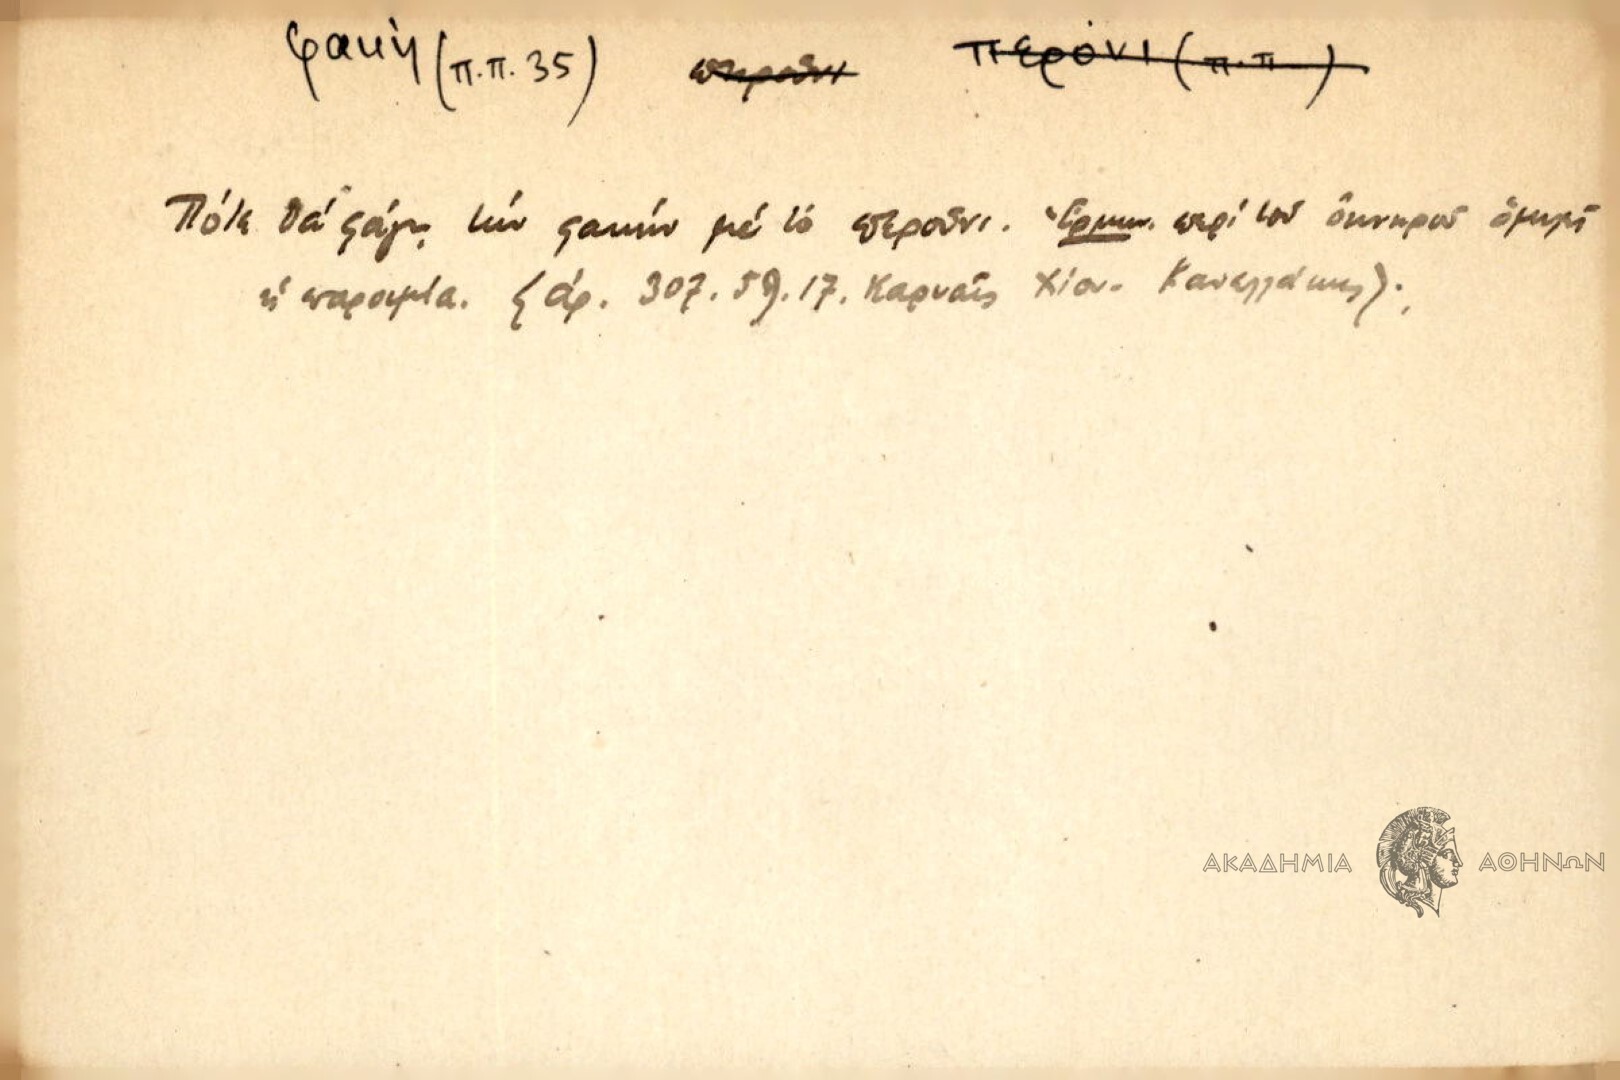 φακή (π.π. 35) περοῦνι περόνι (π.π. )
Πότε θά φάγῃ τήν φακήν μέ τό περοῦνι. Ἑρμην. περί τοῦ ὀκνηροῦ
ἡ παροιμία. (ἀρ. 307. 59. 17. Καρυαῖς Χίου. Κανελλάκης).
ΑΚΑΔΗΜΙΑ ΑΘΗΝΩΝ